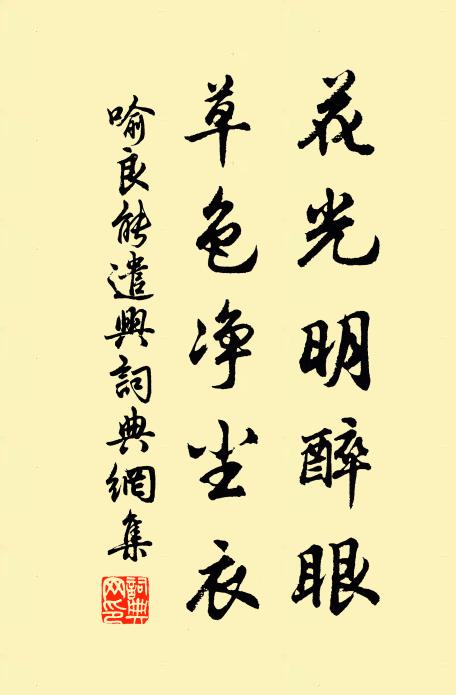 花光明醉眼
草色净坐衣
喻良能遣興詞典網集
詞典網印